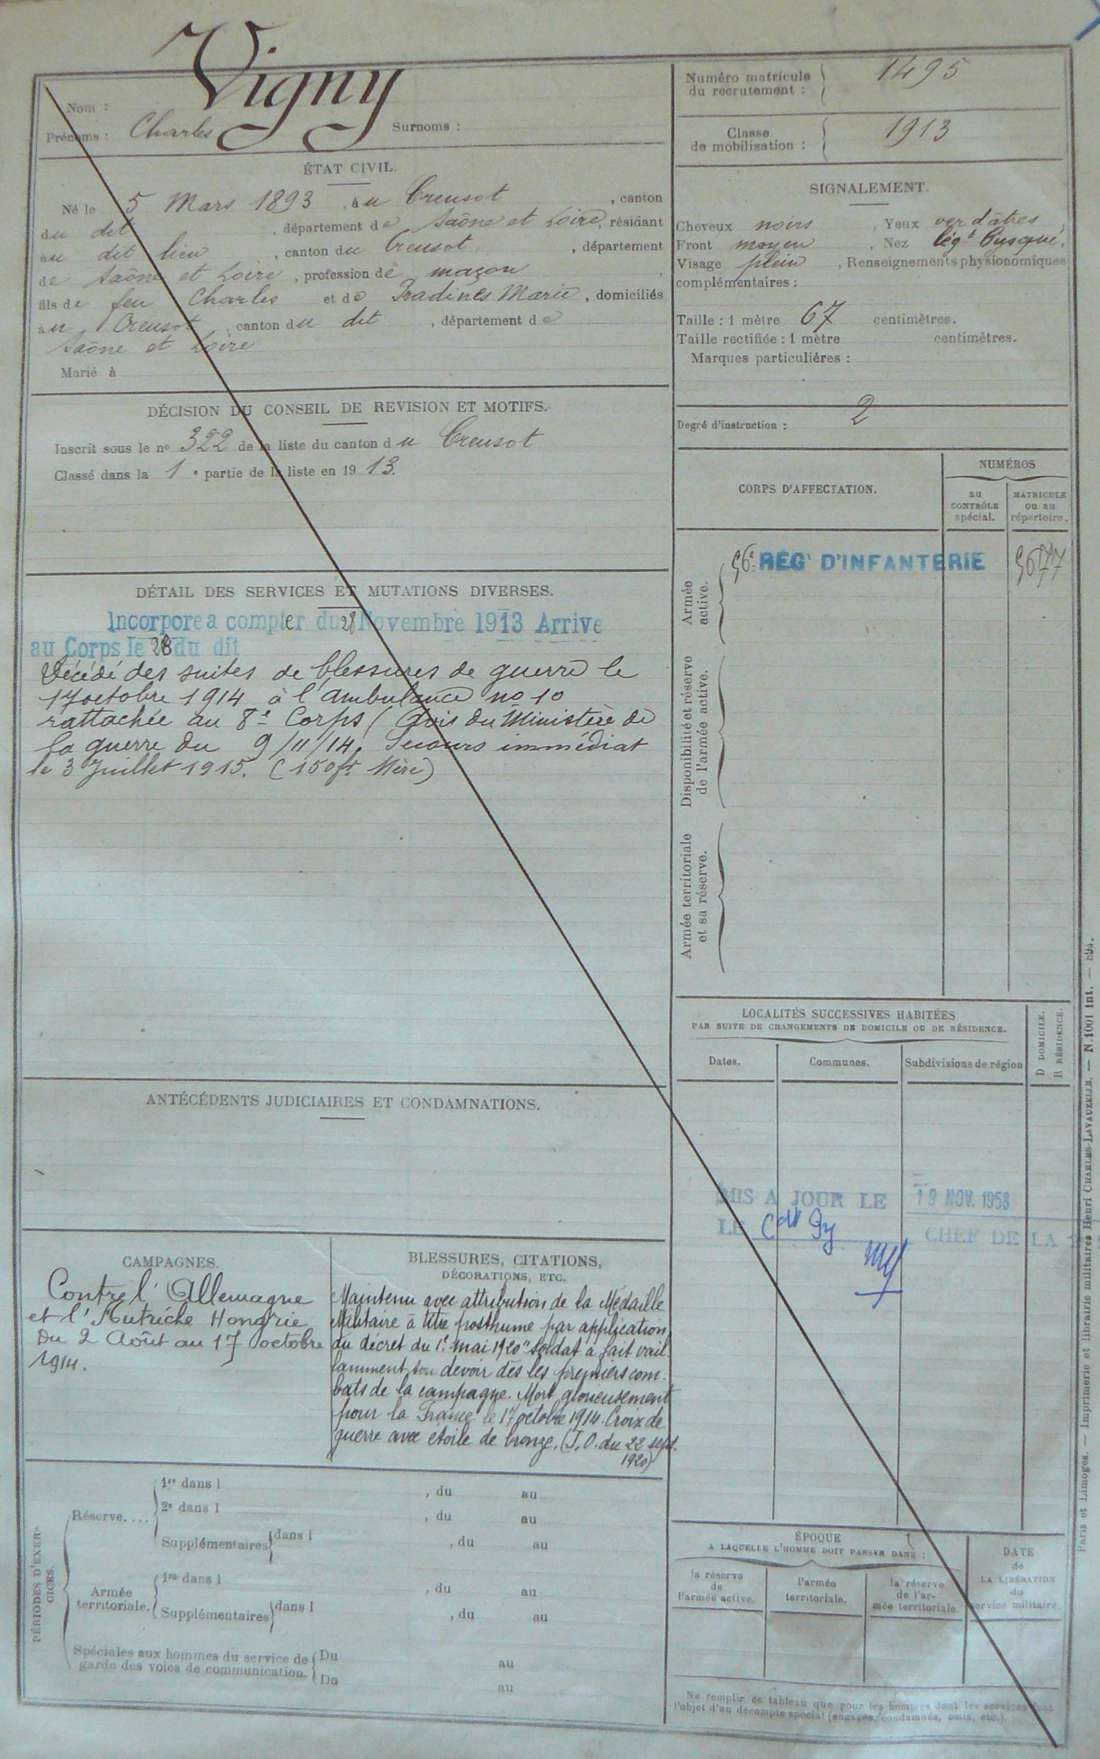 Vigny
Nom :
Prénoms : Charles Surnoms :
ÉTAT CIVIL.
Né le 5 Mars 1893, au Creusot, canton
du dit, département de Saône et Loire, résidant
au dit lieu, canton du Creusot, département
de Saône et Loire, profession de maçon,
fils de feu Charles et de Pradines Marie, domiciliés
au Creusot, canton du dit, département de
Saône et Loire
Marié à
DÉCISION DU CONSEIL DE REVISION ET MOTIFS.
Inscrit sous le no 322 de la liste du canton du Creusot
Classé dans la 1e partie de la liste en 1913.
DÉTAIL DES SERVICES ET MUTATIONS DIVERSES.
Incorporé a compter du 28 Novembre 1913 Arrivé
au Corps le 28 du dit
Décédé des suites de blessures de guerre le
17 octobre 1914 à l'ambulance no 10
rattachée au 8e Corps (Avis du Ministère de
la guerre du 9/11/14. Secours immédiat
le 3 Juillet 1915. (150f. Mère)
ANTÉCÉDENTS JUDICIAIRES ET CONDAMNATIONS.
CAMPAGNES.
Contre l'Allemagne
et l'Autriche Hongrie
Du 2 Août au 17 octobre
1914.
BLESSURES, CITATIONS,
DÉCORATIONS, ETC.
Maintenu avec attribution de la Médaille
Militaire à titre posthume par application
du décret du 1er mai 1920 "soldat à fait vail
lamment son devoir dès les premiers com-
bats de la campagne. Mort glorieusement
pour la France le 17 octobre 1914. Croix de
guerre avec étoile de bronze. (J.O. du 22 sept.
1920)
PÉRIODES D'EXERCICES.
Réserve....
1re dans l , du au
2e dans l , du au
Supplémentaires dans l , du au
Armée
territoriale.
1re dans l , du au
Supplémentaires dans l , du au
Spéciales aux hommes du service de
garde des voies de communication.
Du au
Du au
Numéro matricule
du recrutement : 1495
Classe
de mobilisation : 1913
SIGNALEMENT.
Cheveux noirs, Yeux verdâtres,
Front moyen, Nez légt busqué,
Visage plein, Renseignements physionomiques
complémentaires :
Taille : 1 mètre 67 centimètres.
Taille rectifiée : 1 mètre centimètres.
Marques particulières :
Degré d'instruction : 2
CORPS D'AFFECTATION.
NUMÉROS
au
CONTRÔLE
spécial.
MATRICULE
ou au
répertoire.
Armée
active.
56e RÉGt D'INFANTERIE 5677
Disponibilité et réserve
de l'armée active.
Armée territoriale
et sa réserve.
LOCALITÉS SUCCESSIVES HABITÉES
PAR SUITE DE CHANGEMENTS DE DOMICILE OU DE RÉSIDENCE.
Dates. Communes. Subdivisions de région
D DOMICILE.
R RÉSIDENCE.
MIS A JOUR LE 19 NOV. 1958
LE CHEF DE LA
ÉPOQUE
A LAQUELLE L'HOMME DOIT PASSER DANS :
la réserve
de
l'armée active.
l'armée
territoriale.
la réserve
de l'ar-
mée territoriale.
DATE
de
LA LIBÉRATION
du
service militaire.
Ne remplir ce tableau que pour les hommes dont les services font
l'objet d'un décompte spécial (engagés, condamnés, omis, etc.).
Paris et Limoges. — Imprimerie et librairie militaires Henri CHARLES-LAVAUZELLE. — N. 1001 int. — 894.